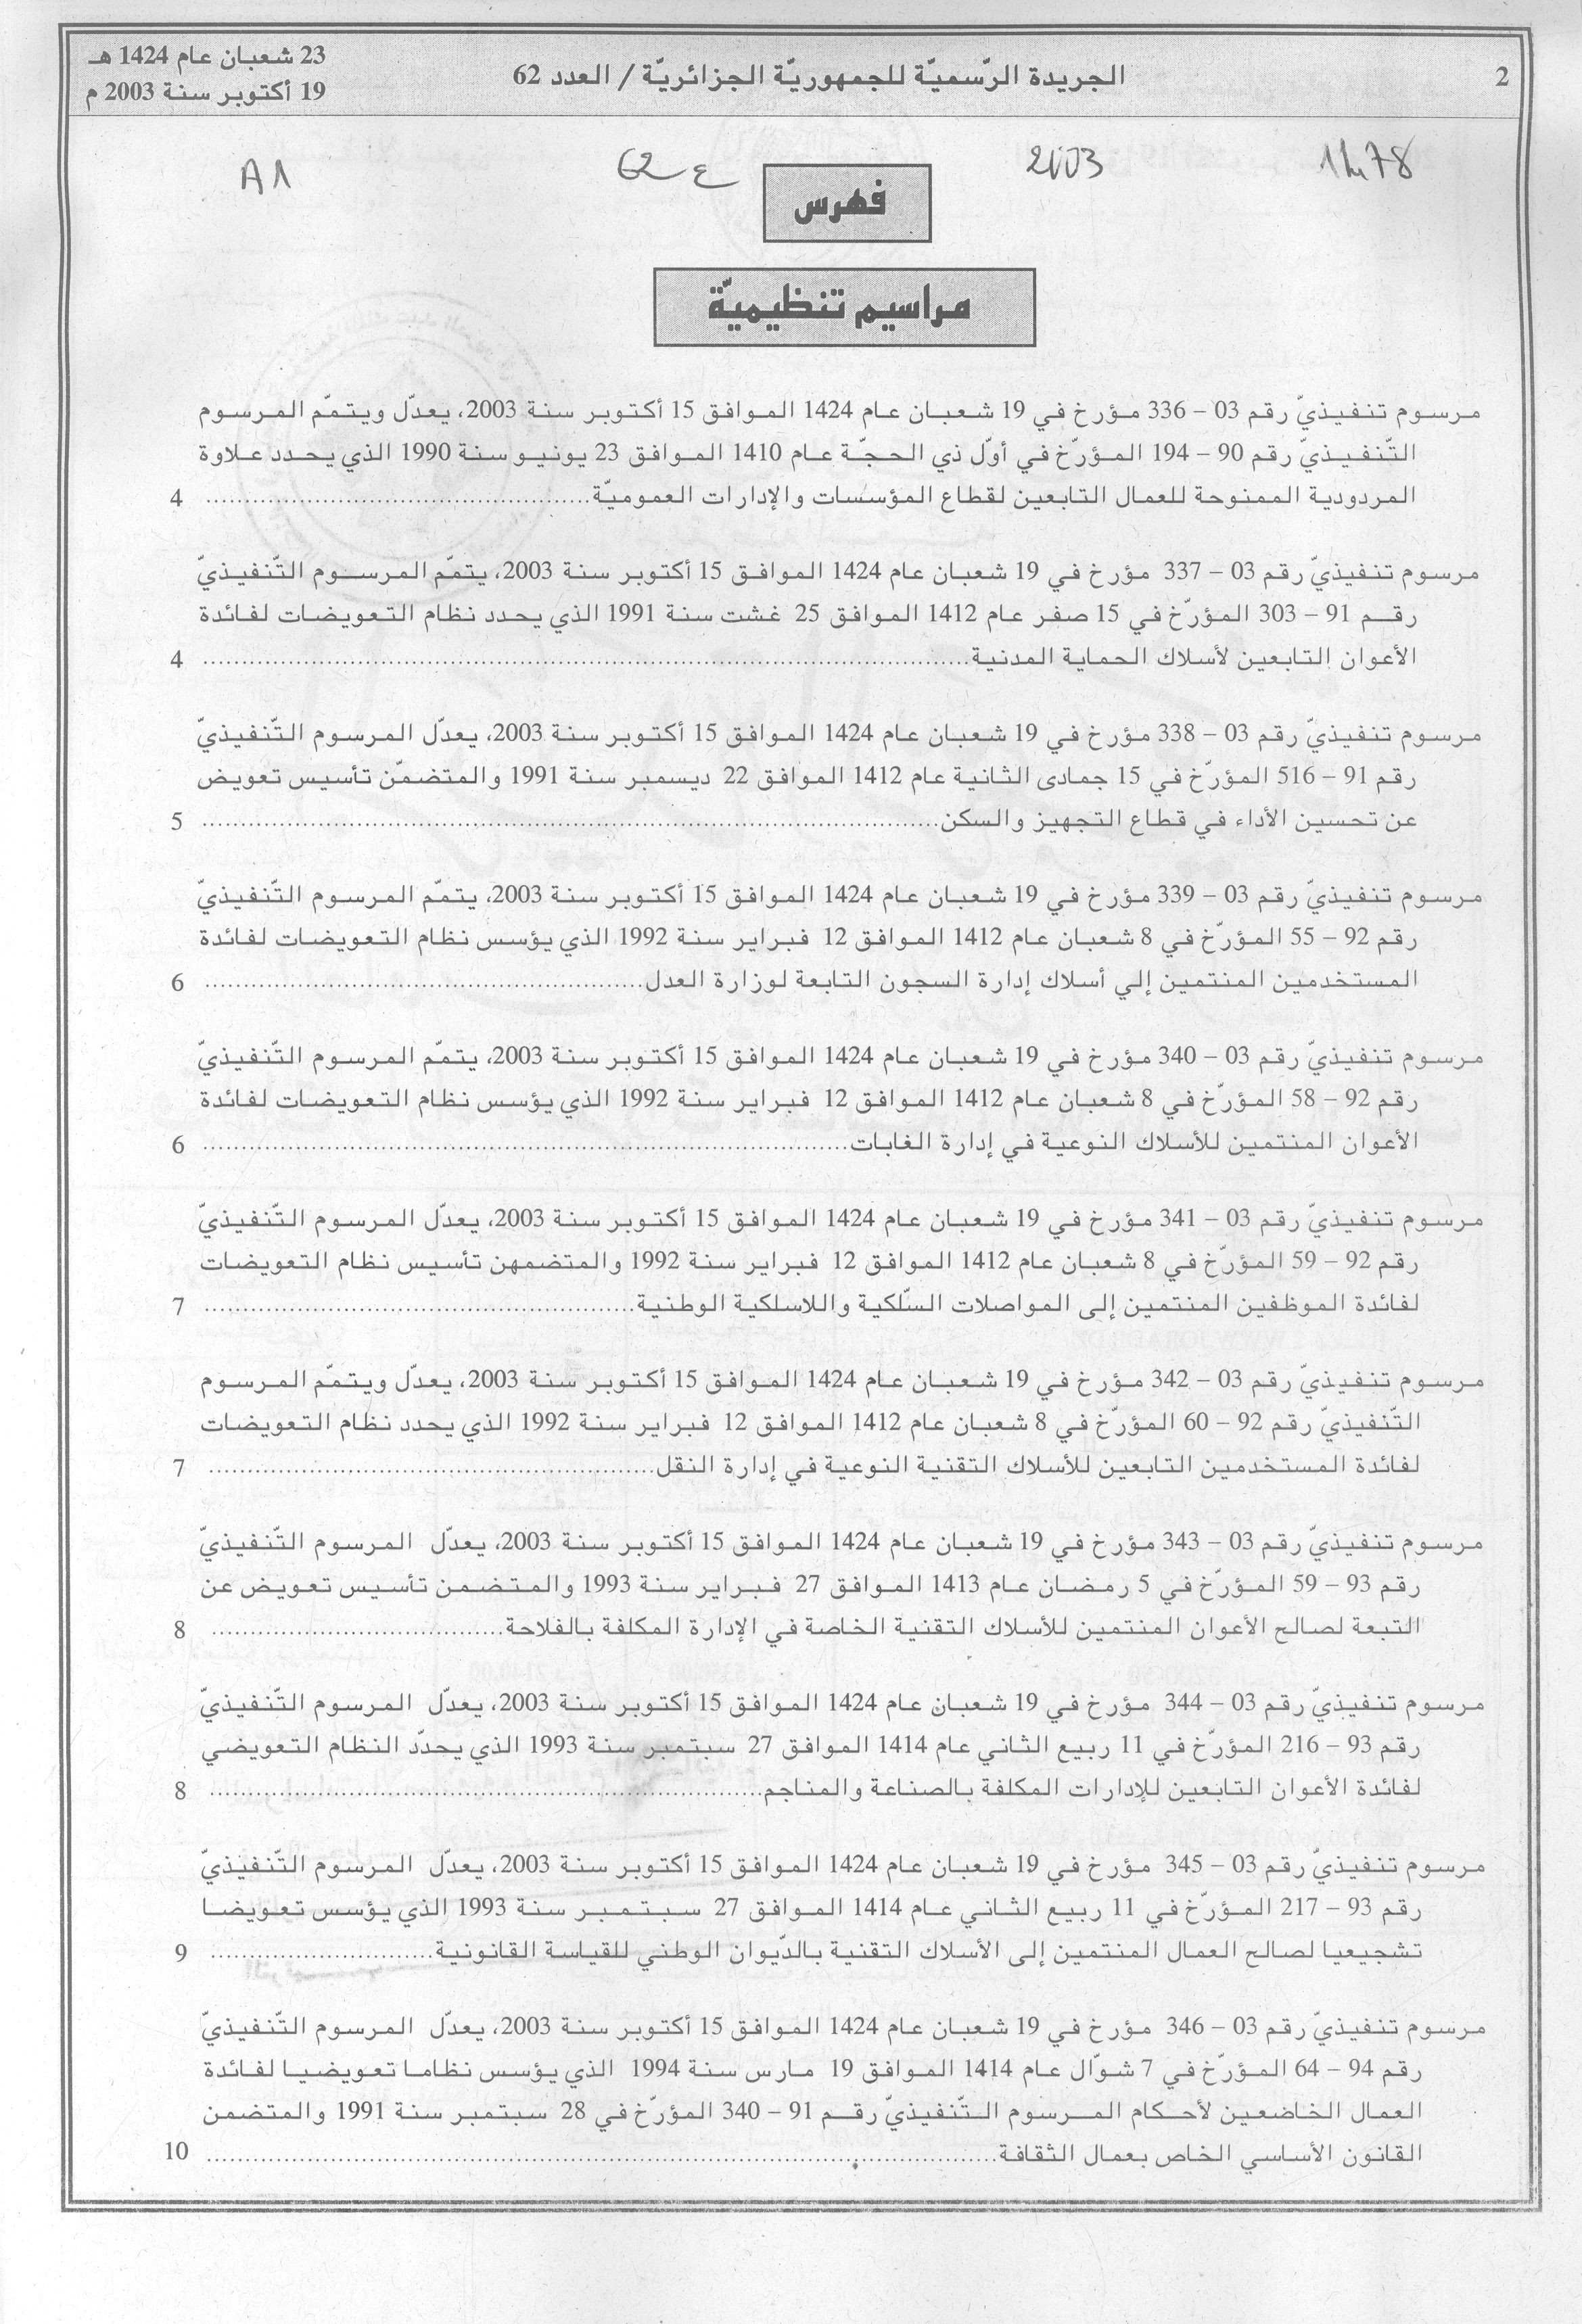 2
الجريدة الرّسميّة للجمهوريّة الجزائريّة / العدد 62
23 شعبان عام 1424 هـ
19 أكتوبر سنة 2003 م
2003
ع 62
A1
فهرس
مراسيم تنظيميّة
مرسوم تنفيذيّ رقم 03 – 336 مؤرخ في 19 شعبان عام 1424 الموافق 15 أكتوبر سنة 2003، يعدّل ويتمّم المرسوم
التّنفيذيّ رقم 90 – 194 المؤرّخ في أوّل ذي الحجّة عام 1410 الموافق 23 يونيو سنة 1990 الذي يحدد علاوة
المردودية الممنوحة للعمال التابعين لقطاع المؤسسات والإدارات العموميّة.................................................. 4
مرسوم تنفيذيّ رقم 03 – 337 مؤرخ في 19 شعبان عام 1424 الموافق 15 أكتوبر سنة 2003، يتمّم المرسوم التّنفيذيّ
رقم 91 – 303 المؤرّخ في 15 صفر عام 1412 الموافق 25 غشت سنة 1991 الذي يحدد نظام التعويضات لفائدة
الأعوان التابعين لأسلاك الحماية المدنية.................................................. 4
مرسوم تنفيذيّ رقم 03 – 338 مؤرخ في 19 شعبان عام 1424 الموافق 15 أكتوبر سنة 2003، يعدّل المرسوم التّنفيذيّ
رقم 91 – 516 المؤرّخ في 15 جمادى الثانية عام 1412 الموافق 22 ديسمبر سنة 1991 والمتضمّن تأسيس تعويض
عن تحسين الأداء في قطاع التجهيز والسكن.................................................. 5
مرسوم تنفيذيّ رقم 03 – 339 مؤرخ في 19 شعبان عام 1424 الموافق 15 أكتوبر سنة 2003، يتمّم المرسوم التّنفيذيّ
رقم 92 – 55 المؤرّخ في 8 شعبان عام 1412 الموافق 12 فبراير سنة 1992 الذي يؤسس نظام التعويضات لفائدة
المستخدمين المنتمين إلي أسلاك إدارة السجون التابعة لوزارة العدل.................................................. 6
مرسوم تنفيذيّ رقم 03 – 340 مؤرخ في 19 شعبان عام 1424 الموافق 15 أكتوبر سنة 2003، يتمّم المرسوم التّنفيذيّ
رقم 92 – 58 المؤرّخ في 8 شعبان عام 1412 الموافق 12 فبراير سنة 1992 الذي يؤسس نظام التعويضات لفائدة
الأعوان المنتمين للأسلاك النوعية في إدارة الغابات.................................................. 6
مرسوم تنفيذيّ رقم 03 – 341 مؤرخ في 19 شعبان عام 1424 الموافق 15 أكتوبر سنة 2003، يعدّل المرسوم التّنفيذيّ
رقم 92 – 59 المؤرّخ في 8 شعبان عام 1412 الموافق 12 فبراير سنة 1992 والمتضمهن تأسيس نظام التعويضات
لفائدة الموظفين المنتمين إلى المواصلات السّلكية واللاسلكية الوطنية.................................................. 7
مرسوم تنفيذيّ رقم 03 – 342 مؤرخ في 19 شعبان عام 1424 الموافق 15 أكتوبر سنة 2003، يعدّل ويتمّم المرسوم
التّنفيذيّ رقم 92 – 60 المؤرّخ في 8 شعبان عام 1412 الموافق 12 فبراير سنة 1992 الذي يحدد نظام التعويضات
لفائدة المستخدمين التابعين للأسلاك التقنية النوعية في إدارة النقل.................................................. 7
مرسوم تنفيذيّ رقم 03 – 343 مؤرخ في 19 شعبان عام 1424 الموافق 15 أكتوبر سنة 2003، يعدّل المرسوم التّنفيذيّ
رقم 93 – 59 المؤرّخ في 5 رمضان عام 1413 الموافق 27 فبراير سنة 1993 والمتضمن تأسيس تعويض عن
التبعة لصالح الأعوان المنتمين للأسلاك التقنية الخاصة في الإدارة المكلفة بالفلاحة.................................................. 8
مرسوم تنفيذيّ رقم 03 – 344 مؤرخ في 19 شعبان عام 1424 الموافق 15 أكتوبر سنة 2003، يعدّل المرسوم التّنفيذيّ
رقم 93 – 216 المؤرّخ في 11 ربيع الثاني عام 1414 الموافق 27 سبتمبر سنة 1993 الذي يحدّد النظام التعويضي
لفائدة الأعوان التابعين للإدارات المكلفة بالصناعة والمناجم.................................................. 8
مرسوم تنفيذيّ رقم 03 – 345 مؤرخ في 19 شعبان عام 1424 الموافق 15 أكتوبر سنة 2003، يعدّل المرسوم التّنفيذيّ
رقم 93 – 217 المؤرّخ في 11 ربيع الثاني عام 1414 الموافق 27 سبتمبر سنة 1993 الذي يؤسس تعويضا
تشجيعيا لصالح العمال المنتمين إلى الأسلاك التقنية بالدّيوان الوطني للقياسة القانونية.............................. 9
مرسوم تنفيذيّ رقم 03 – 346 مؤرخ في 19 شعبان عام 1424 الموافق 15 أكتوبر سنة 2003، يعدّل المرسوم التّنفيذيّ
رقم 94 – 64 المؤرّخ في 7 شوّال عام 1414 الموافق 19 مارس سنة 1994 الذي يؤسس نظاما تعويضيا لفائدة
العمال الخاضعين لأحكام المرسوم التّنفيذيّ رقم 91 – 340 المؤرّخ في 28 سبتمبر سنة 1991 والمتضمن
القانون الأساسي الخاص بعمال الثقافة.................................................. 10